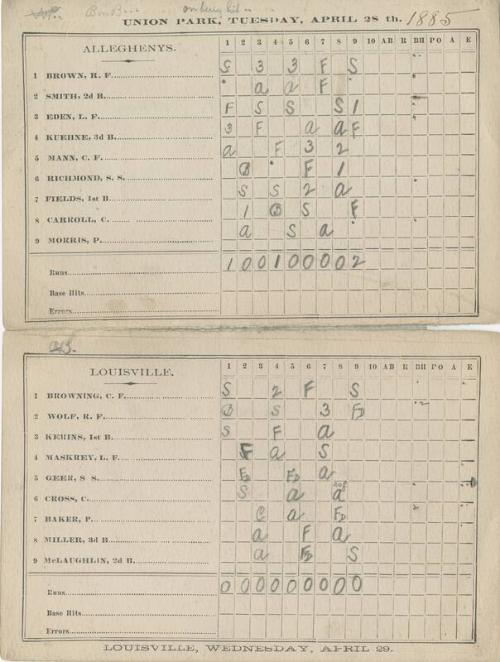 UNION PARK, TUESDAY, APRIL 28 th. 1885
ALLEGHENYS. 1 2 3 4 5 6 7 8 9 10 AB R BH PO A E
1 BROWN, R. F. S 3 3 F S
2 SMITH, 2d B. a a F
3 EDEN, L. F. F S S S 1
4 KUEHNE, 3d B. 3 F a a F
5 MANN, C. F. a F 3 2
6 RICHMOND, S. S. F 1
7 FIELDS, 1st B. S S 2 a
8 CARROLL, C. 1 S F
9 MORRIS, P. a S a
Runs 1 0 0 1 0 0 0 0 2
Base Hits
Errors
LOUISVILLE. 1 2 3 4 5 6 7 8 9 10 AB R BH PO A E
1 BROWNING, C. F. S 2 F S
2 WOLF, R. F. S 3 FD
3 KERINS, 1st B. S F a
4 MASKREY, L. F. F a S
5 GEER, S S. FD FD a
6 CROSS, C. S a a
7 BAKER, P. C a FD
8 MILLER, 3d B. a F a
9 McLAUGHLIN, 2d B. a FD S
Runs 0 0 0 0 0 0 0 0 0
Base Hits
Errors
LOUISVILLE, WEDNESDAY, APRIL 29.